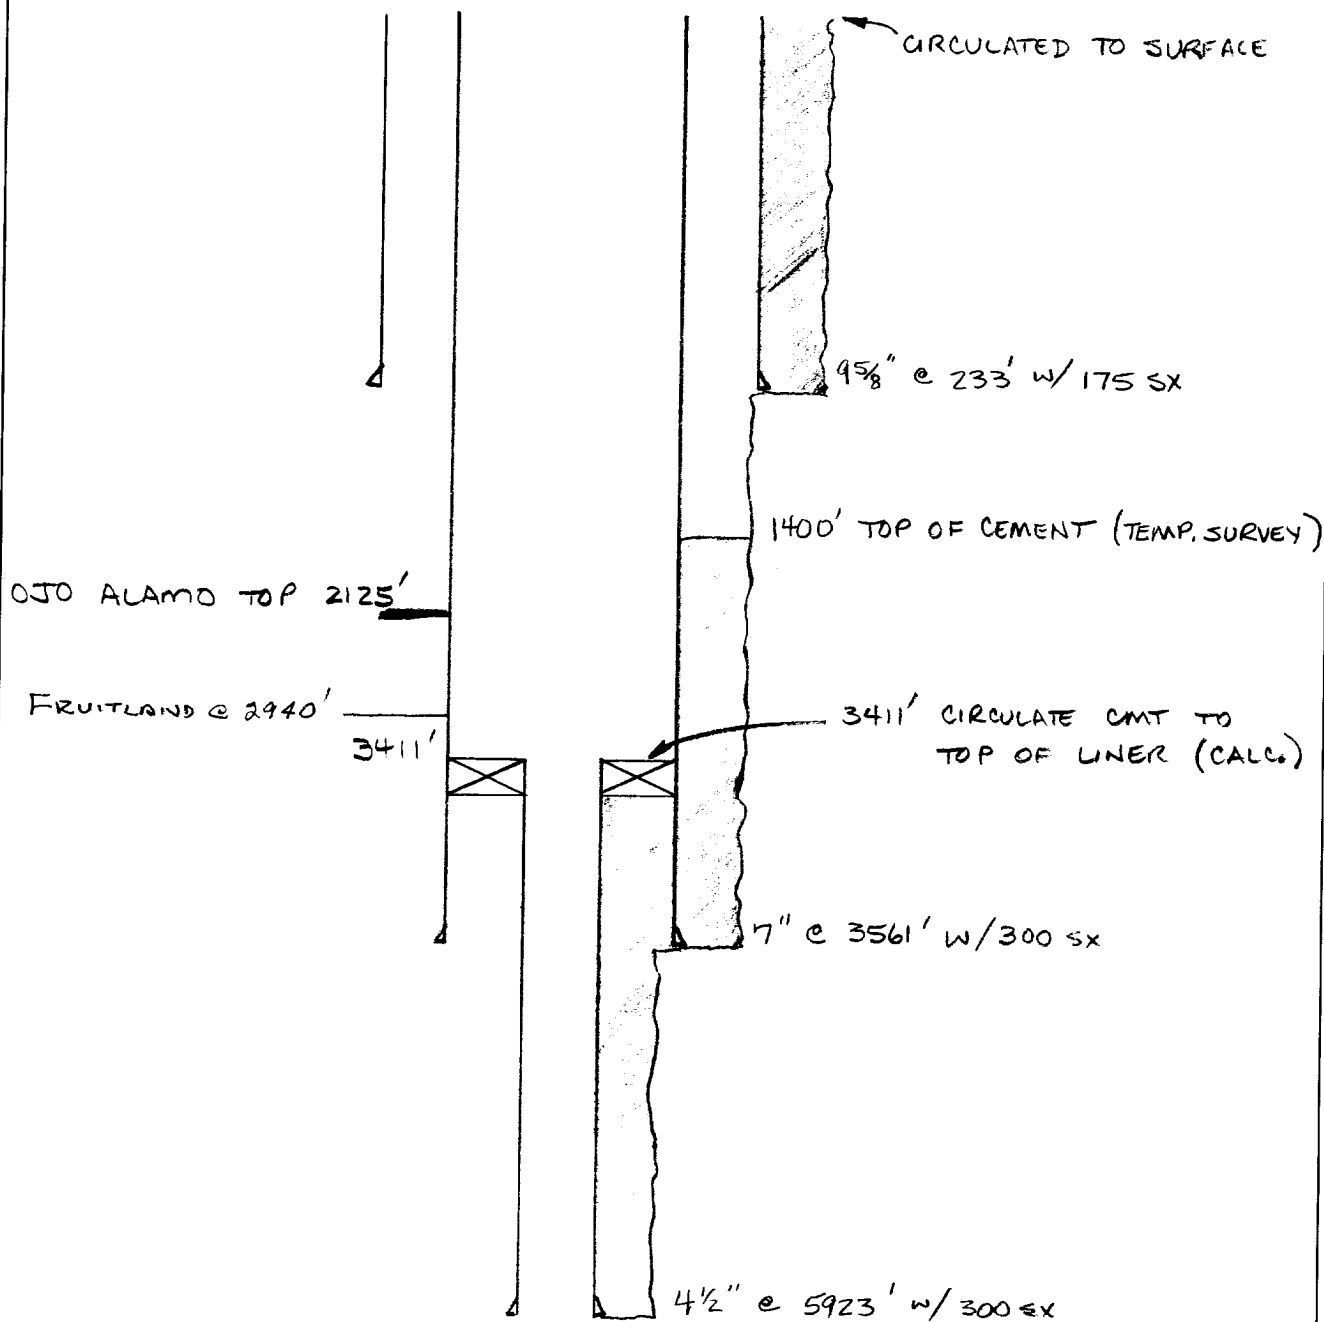 CIRCULATED TO SURFACE
9 5/8" @ 233' w/ 175 SX
1400' TOP OF CEMENT (TEMP. SURVEY)
OJO ALAMO TOP 2125'
FRUITLAND @ 2940'
3411'
3411' CIRCULATE CMT TO
TOP OF LINER (CALC.)
7" @ 3561' w/ 300 SX
4 1/2" @ 5923' w/ 300 SX